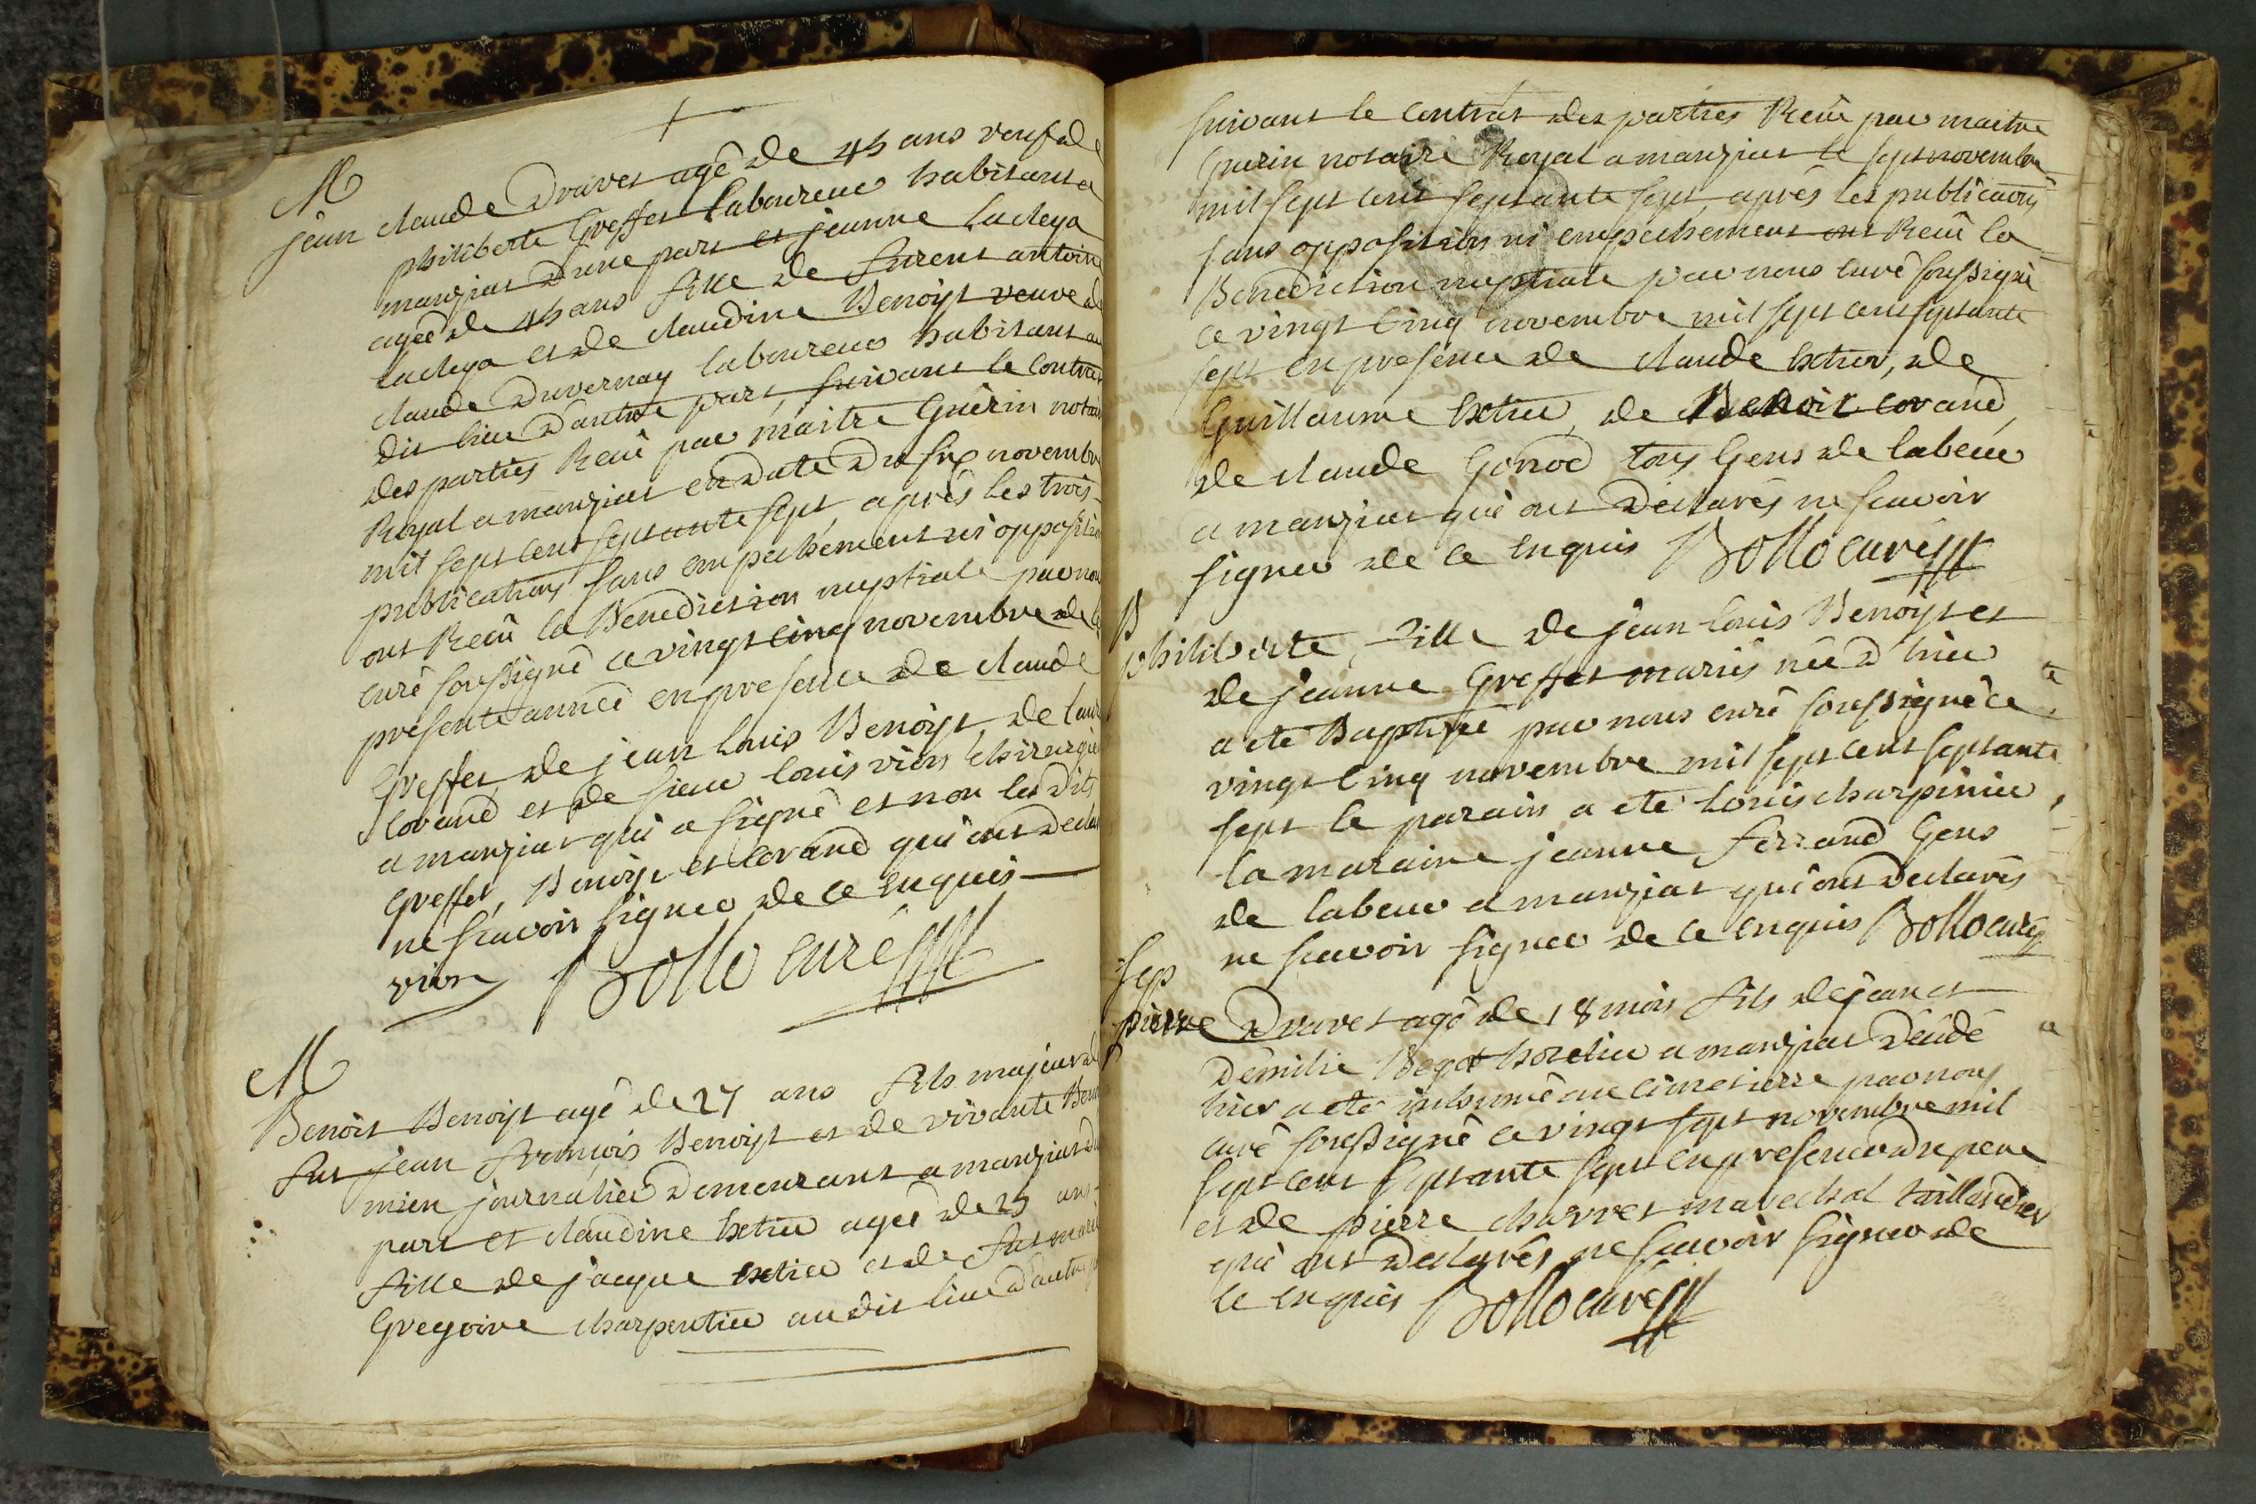 M
jean claude Dravet agé de 45 ans veuf de
philiberte Greffet laboureur habitant a
manziat d'une part et jeanne Lacleya
agée de 45 ans fille de Furent antoine
Lacleya et de claudine Benoist veuve de
claude Duvernay laboureur habitant au
dit lieu d'autre part, suivant le contrat
des parties Receu par maitre Guérin notaire
Royal a manziat en date du six novembre
mil sept cent septante sept après les trois
publications sans empechement ni opposition
ont Receu la Benediction nuptiale par nous
curé soussigné ce vingt cinq novembre de la
presente année en presence de claude
Greffet, de jean louis Benoist de
corand et de sieur louis vion chirurgien
a manziat qui a signé et non les dits
Greffet, Benoist et corand qui ont declaré
ne scavoir signer de ce enquis
vion Bollo curé
M
Benoit Benoist agé de 27 ans fils majeur de
fut jean francois Benoist et de vivante
mien journalier demeurant a manziat d'une
part et claudine hetier agée de 25 ans
fille de jaque hetier et de fut marie
Gregoire charpentier au dit lieu d'autre
suivant le contrat des parties Receu par maitre
Guerin notaire Royal a manziat le sept novembre
mil sept cent septante sept après les publications
sans opposition ni empechement ont Receu la
Benediction nuptiale par nous curé soussigné
ce vingt cinq novembre mil sept cent septante
sept en presence de claude hetier, de
Guillaume hetier, de Benoit corand,
de claude Gonod tous Gens de labeur
a manziat qui ont declarés ne scavoir
signer de ce enquis Bollo curé
B
philiberte, fille de jean louis Benoist et
de jeanne Greffet mariés née d'hier
a eté Baptisée par nous curé soussigné ce
vingt cinq novembre mil sept cent septante
sept le parain a eté louis charpinier
la maraine jeanne ferrand Gens
de labeur a manziat qui ont declarés
ne scavoir signer de ce enquis Bollo curé
Sep
pierre Dravet agé de 18 mois fils de jean et
d'emilie hotelier a manziat décédé
hier a eté inhumé au cimetierre par nous
curé soussigné ce vingt sept novembre mil
sept cent septante sept en presence du pere
et de pierre charvet marechal taillandier
qui ont declarés ne scavoir signer de
ce enquis Bollo curé